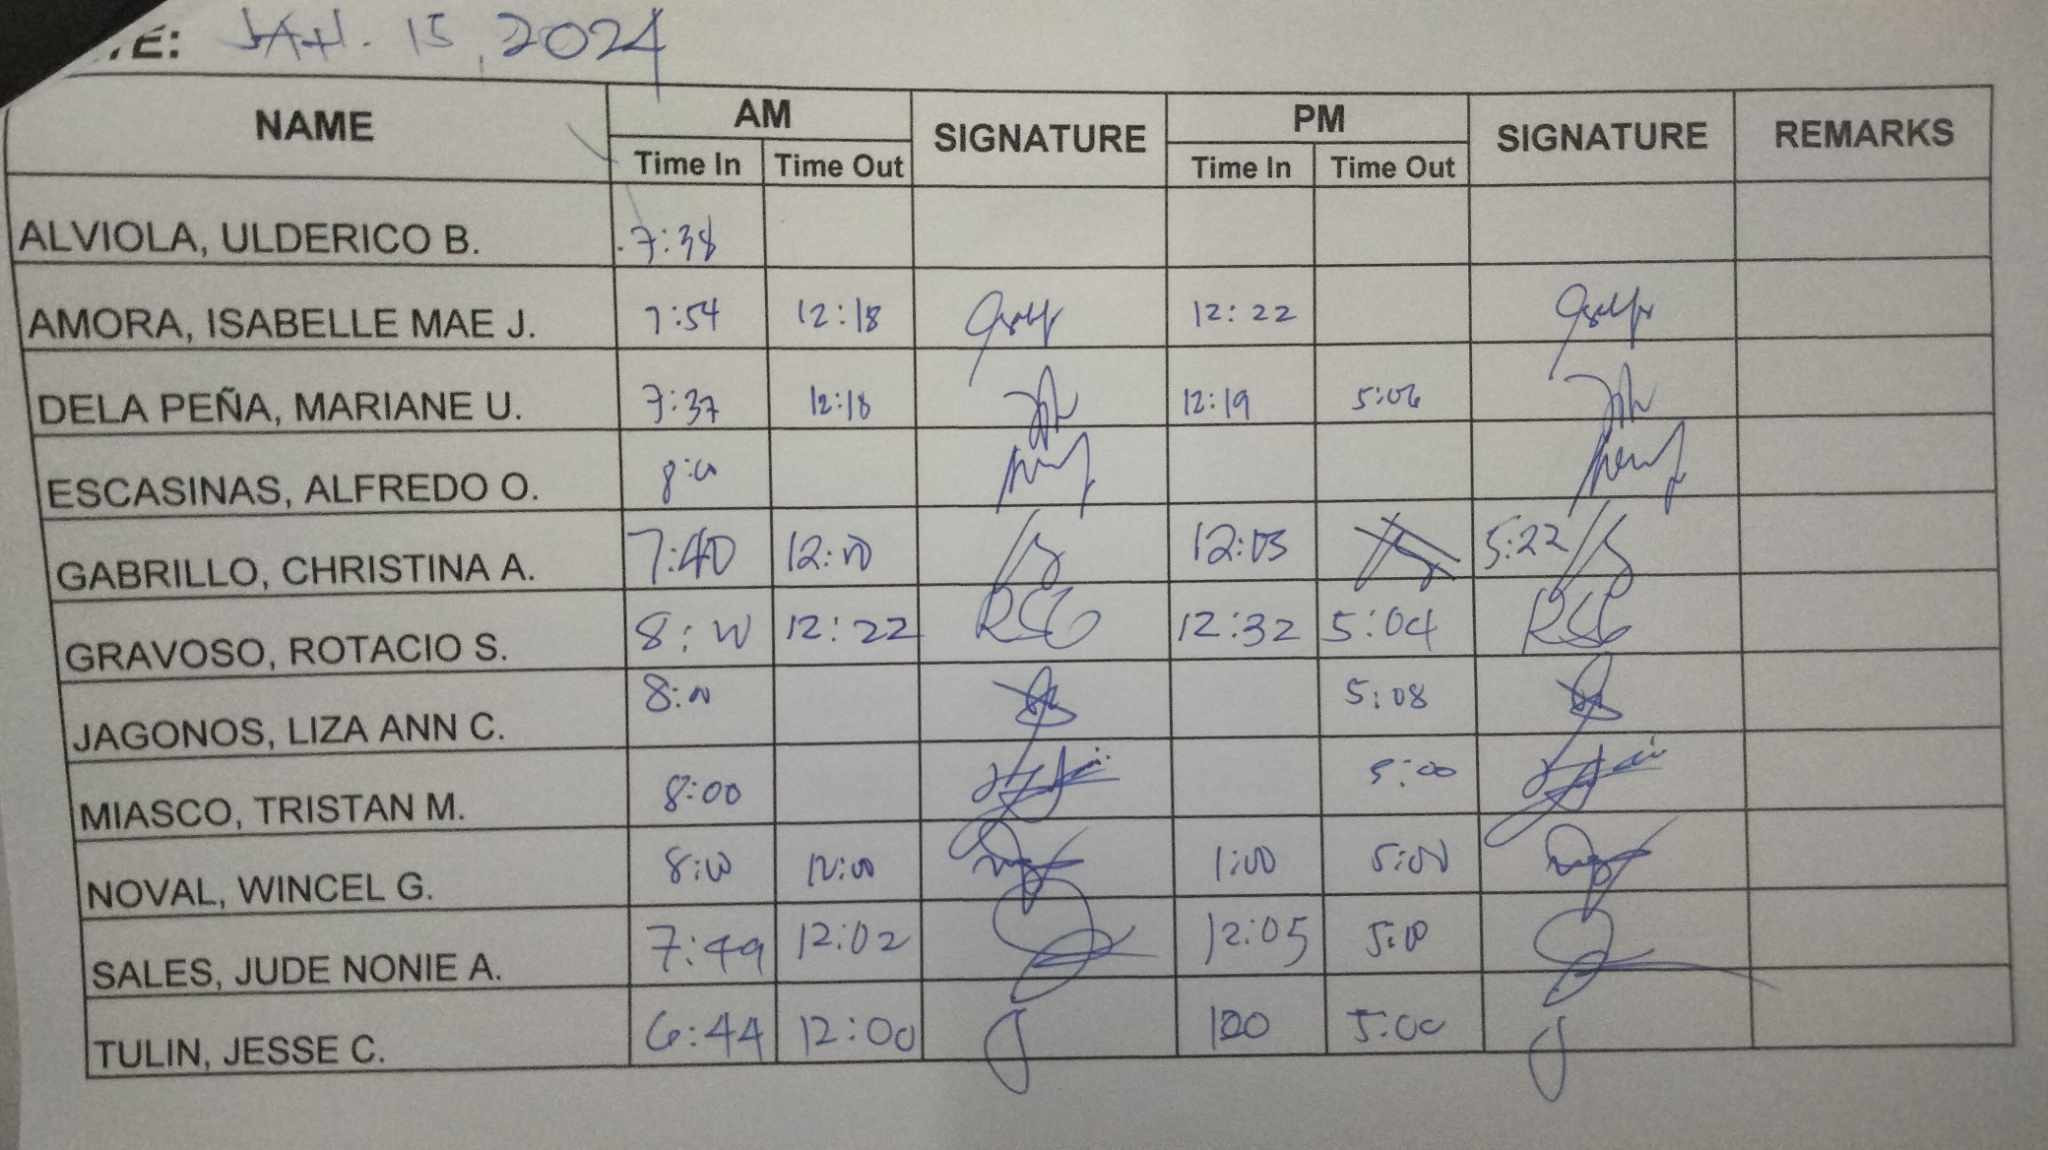 TE: JAN. 15, 2024
NAME AM SIGNATURE PM SIGNATURE REMARKS
Time In Time Out Time In Time Out
ALVIOLA, ULDERICO B. 7:38
AMORA, ISABELLE MAE J. 7:54 12:18 12:22
DELA PEÑA, MARIANE U. 7:37 12:18 12:19 5:06
ESCASINAS, ALFREDO O. 8:00
GABRILLO, CHRISTINA A. 7:40 12:00 12:03 5:22
GRAVOSO, ROTACIO S. 8:00 12:22 RSG 12:32 5:04 RSG
JAGONOS, LIZA ANN C. 8:00 5:08
MIASCO, TRISTAN M. 8:00 5:00
NOVAL, WINCEL G. 8:00 12:00 1:00 5:00
SALES, JUDE NONIE A. 7:49 12:02 12:05 5:00
TULIN, JESSE C. 6:44 12:00 100 5:00